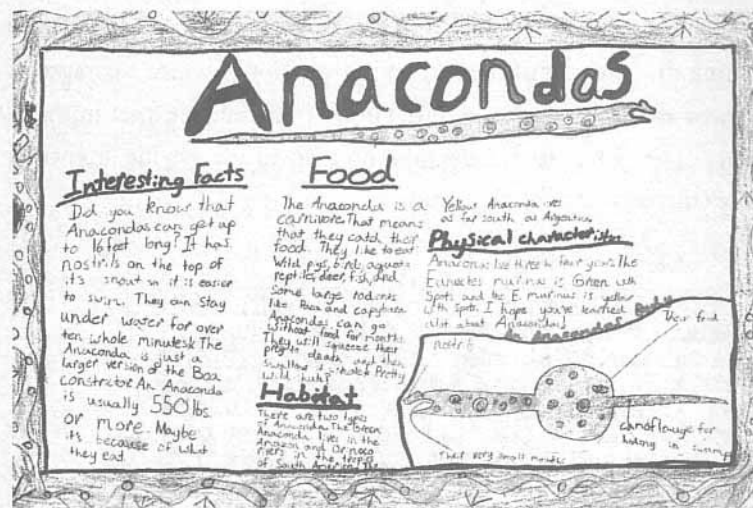 Anacondas
Interesting Facts
Did you know that
Anacondas can get up
to 16 feet long? It has
nostrils on the top of
its snout so it is easier
to swim. They can stay
under water for over
ten whole minutes. The
Anaconda is just a
larger version of the Boa
constrictor. An Anaconda
is usually 550 lbs.
or more. Maybe
its because of what
they eat.
Food
The Anaconda is a
carnivore. That means
that they catch their
food. They like to eat
Wild pigs, birds, aquatic
reptiles, deer, fish, and
some large rodents
like Paca and capybara.
Anacondas can go
without food for months.
They will squeeze their
prey to death and then
swallow it whole! Pretty
wild huh?
Habitat
There are two types
of Anaconda. The Green
Anaconda lives in the
Amazon and Orinoco
rivers in the tropics
of South America. The
Yellow Anaconda lives
as far south as Argentina.
Physical characteristics
Anacondas live three to four years. The
Eunectes murinus is Green with
spots and the E. murinus is yellow
with spots. I hope you've learned
alot about Anacondas!
Anacondas Body
nostril
Their food
camoflauge for
hiding in swamp
Their very small mouths